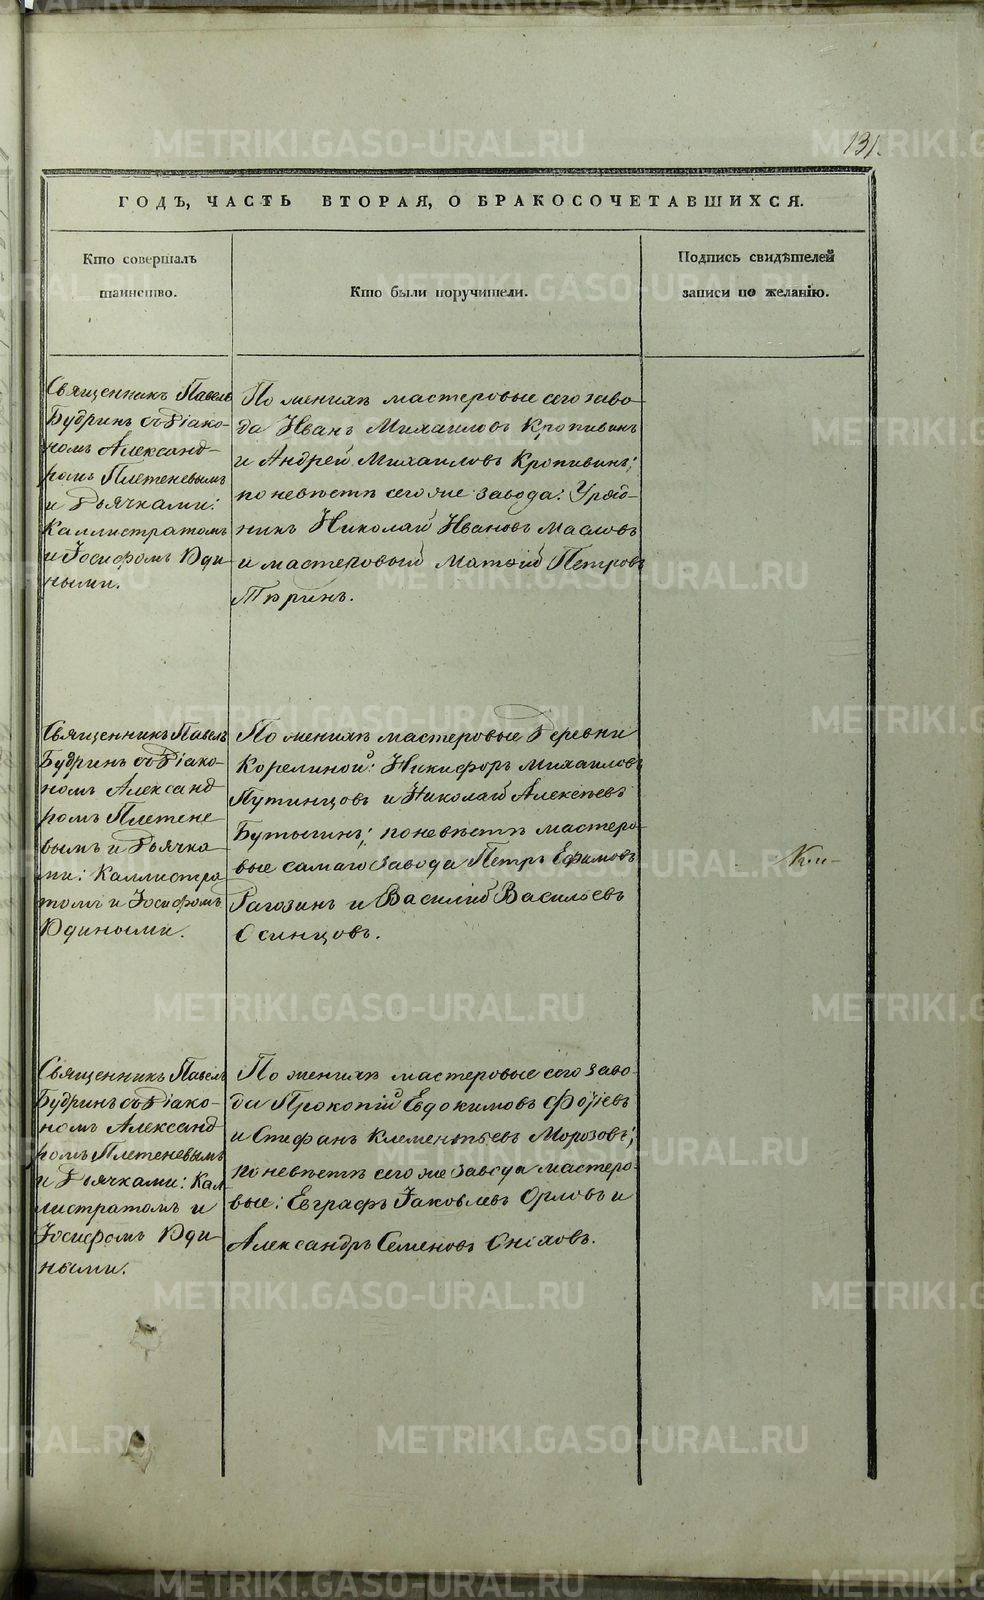 131.
ГОДЪ, ЧАСТЬ ВТОРАЯ, О БРАКОСОЧЕТАВШИХСЯ.
Кто совершалъ
таинство.
Кто были поручители.
Подпись свидѣтелей
записи по желанію.
Священникъ Павелъ
Будринъ съ Діако-
номъ Александ-
ромъ Плетеневымъ
и Дьячками:
Каллистратомъ
и Іосифомъ Юди-
ными.
По женихѣ мастеровые сего заво-
да Иванъ Михаиловъ Кропивинъ
и Андрей Михаиловъ Кропивинъ;
по невѣстѣ сего же завода: Уряд-
никъ Николай Ивановъ Масловъ
и мастеровый Матѳій Петровъ
Тюринъ.
Священникъ Павелъ
Будринъ съ Діако-
номъ Александ
ромъ Плетене
вымъ и Дьячка
ми: Каллистра
томъ и Іосифомъ
Юдиными.
По женихѣ мастеровые Деревни
Корелиной: Никифоръ Михаиловъ
Путинцовъ и Николай Алексѣевъ
Бутыгинъ; по невѣстѣ мастеро-
вые самаго завода Петръ Ефимовъ
Рагозинъ и Василій Васильевъ
Осинцовъ.
Священникъ Павелъ
Будринъ съ Діако-
номъ Александ
ромъ Плетеневымъ
и Дьячками: Кал
листратомъ и
Іосифомъ Юди-
ными.
По женихѣ мастеровые сего заво-
да Прокопій Евдокимовъ
и Стефанъ Клементьевъ Морозовъ;
по невѣстѣ сего же завода мастеро-
вые: Евграфъ Іаковлевъ Орловъ и
Александръ Семеновъ
METRIKI.GASO-URAL.RU